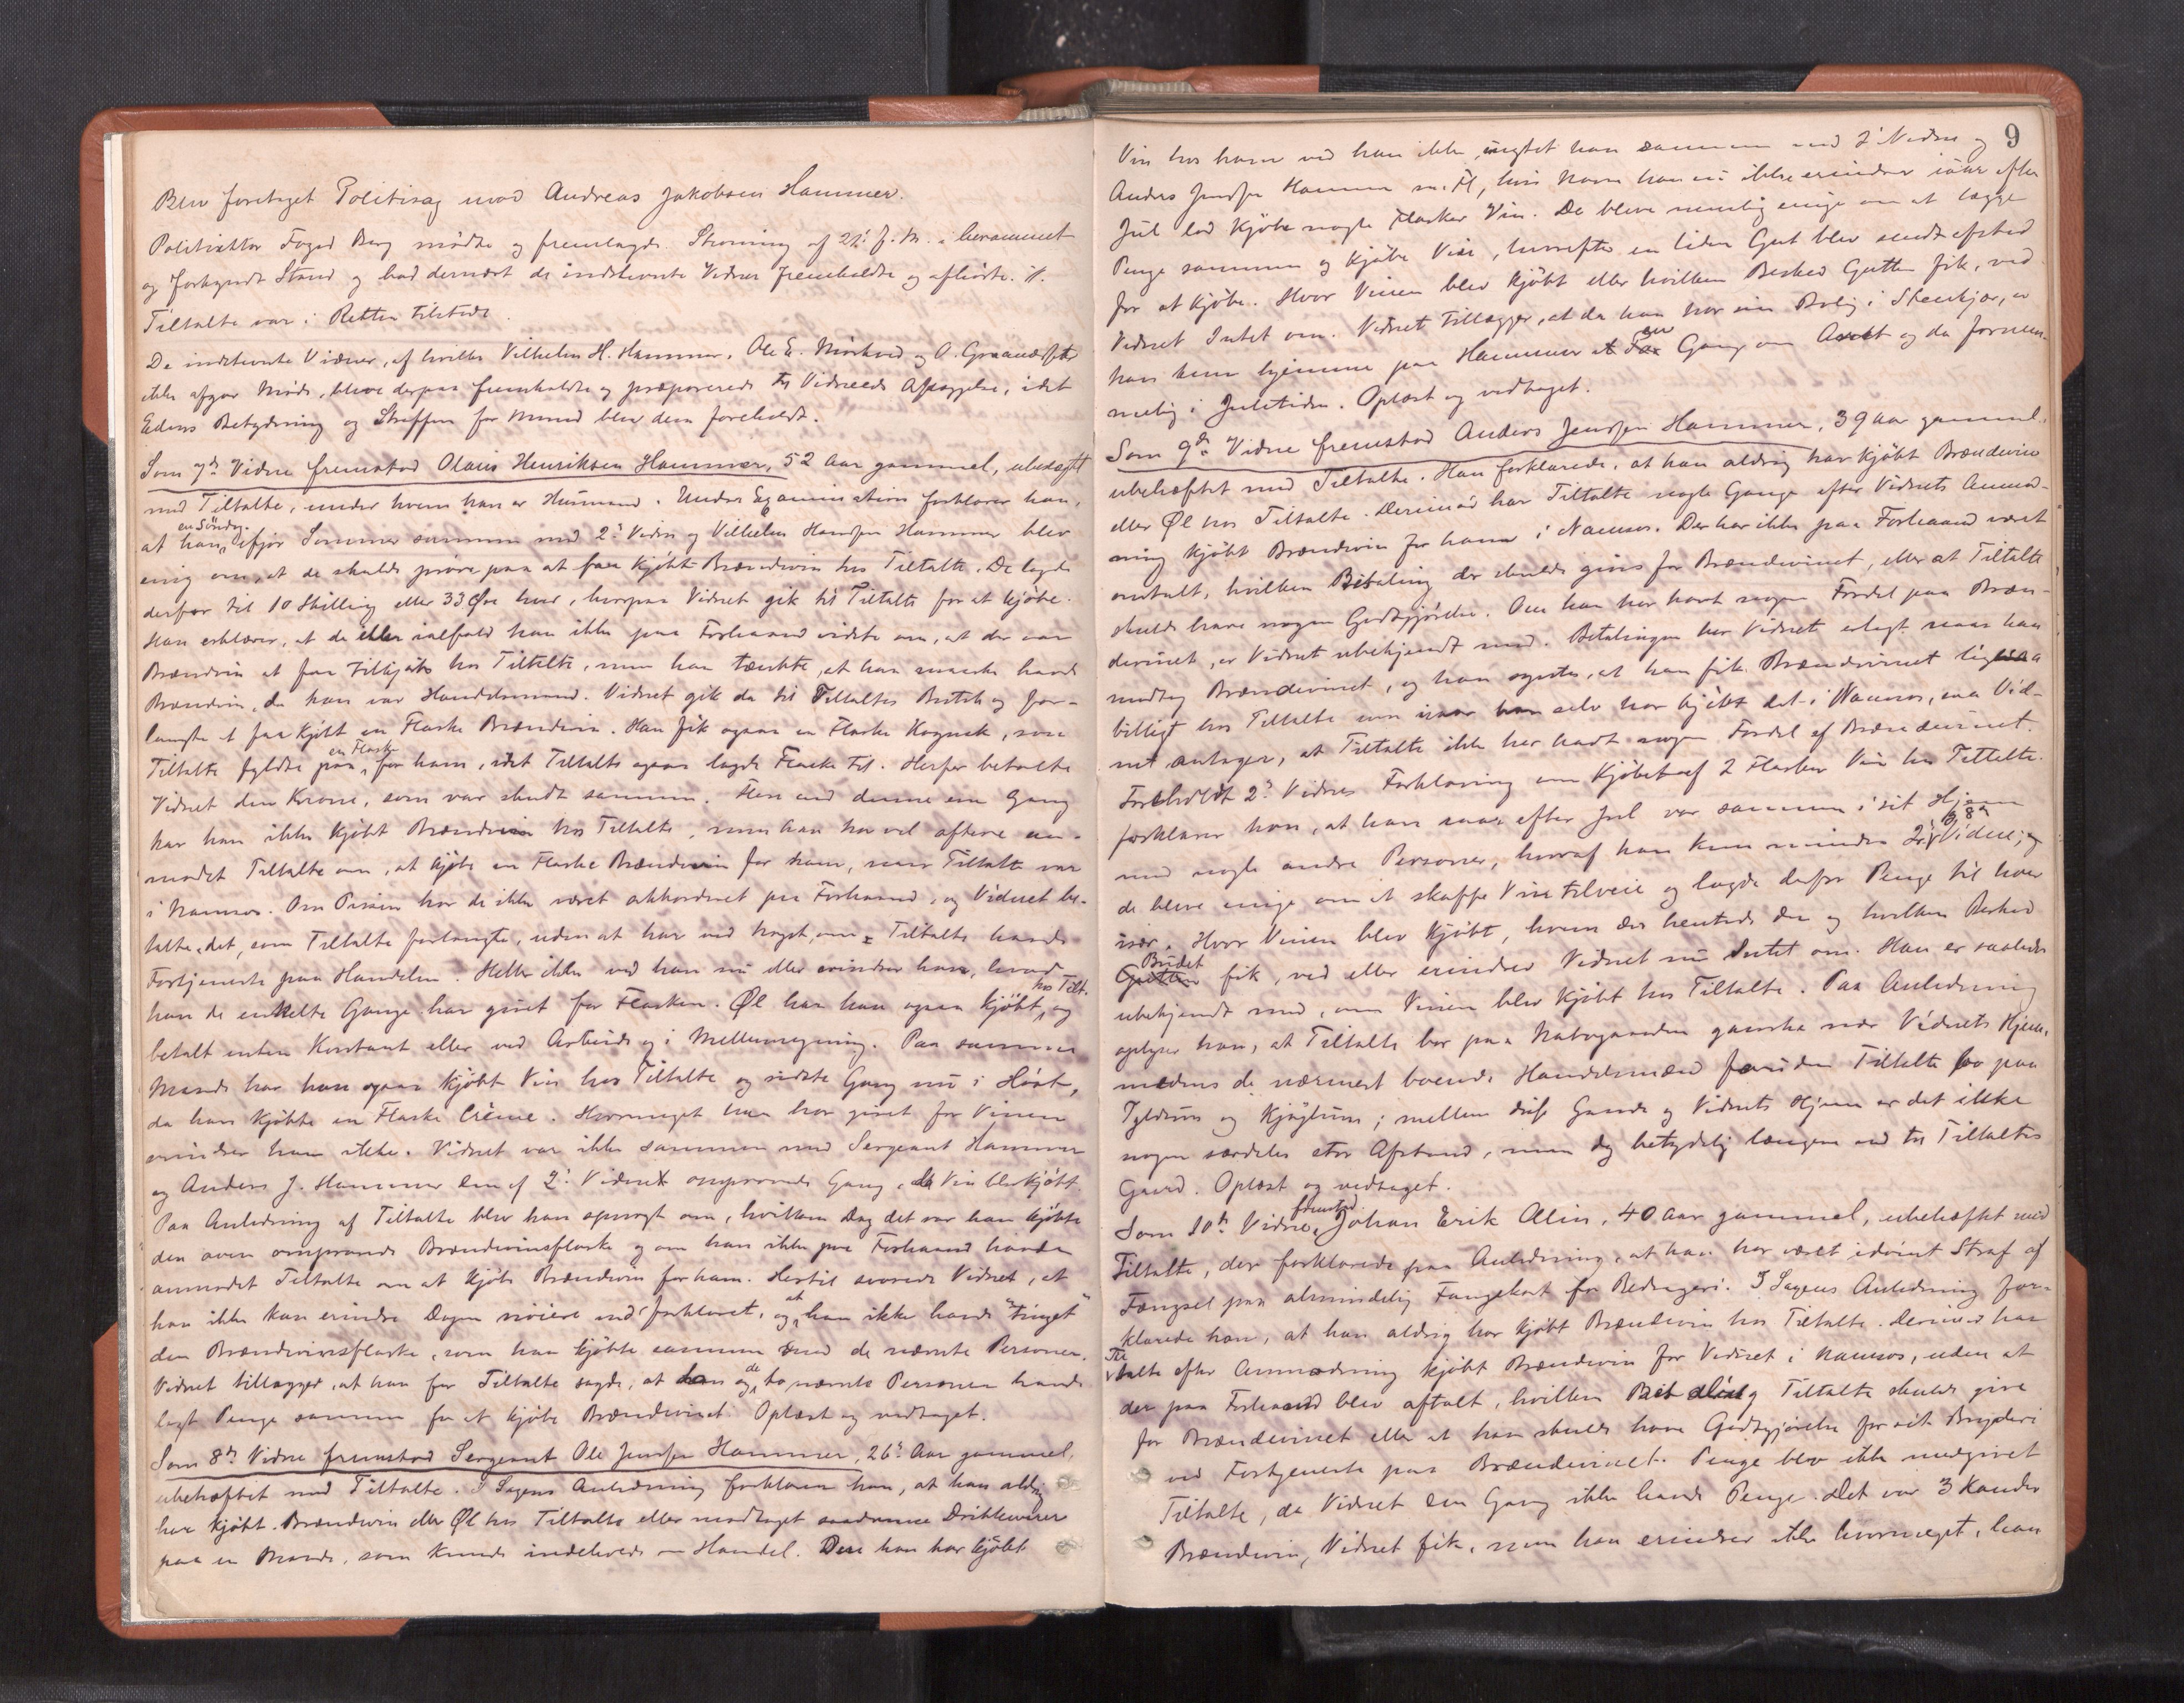 Blev foretaget Politisag mod Andreas Jakobsen Hammer.
Politiaktor Foged Berg mødte og fremlagde Stevning af 21' f. M. i berammet
og forkyndt Stand og bad dernæst de indstevnte Vidner fremkaldte og afhørte.
Tiltalte var i Retten tilstede.
De indstevnte Vidner, af hvilke Vilhelm H. Hammer, Ole E. Mörkved og O.
ikke afgav Møde, bleve derpaa fremkaldte og præparerede til Vidneeds Aflæggelse, idet
Edens Betydning og Straffen for Mened blev dem foreholdt.
Som 7de Vidne fremstod Olaus Henriksen Hammer, 52 Aar gammel, ubeslægtet
med Tiltalte, under hvem han er Husmand. Under Examination forklarer han,
at han en Søndag ifjor Sommer sammen med 2' Vidne og Vilhelm Hansen Hammer blev
enig om, at de skulde prøve paa at faae kjøbt Brændevin hos Tiltalte. De lagde
derfor til 10 Skilling eller 33 Øre hver, hvorpaa Vidnet gik til Tiltalte for at kjøbe.
Han erklærer, at de eller ialfald han ikke paa Forhaand vidste om, at der var
Brændevin at faa tilkjøbs hos Tiltalte, men han tænkte, at han maaske havde
Brændevin, da han var Handelsmand. Vidnet gik da til Tiltaltes Butik og for-
langte at faa kjøbt en Flaske Brændevin. Han fik ogsaa en Flaske Kognak, som
Tiltalte fyldte paa en Flaske for ham, idet Tiltalte ogsaa lagde Flaske til. Herfor betalte
Vidnet den Krone, som var skudt sammen. Flere end denne ene Gang
har han ikke kjøbt Brændevin hos Tiltalte, men han har vel oftere an-
modet Tiltalte om, at kjøbe en Flaske Brændevin for ham, naar Tiltalte var
i Namsos. Om Prisen har de ikke været akkorderet paa Forhaand, og Vidnet be-
talte det, som Tiltalte forlangte, uden at han ved noget om Tiltalte havde
Fortjeneste paa Handelen. Heller ikke ved han nu eller erindrer han, hvad
han de enkelte Gange har givet for Flasken. Øl har han ogsaa kjøbt hos Tilt. og
betalt enten Kontant eller ved Arbeide og i Mellemregning. Paa samme
Maade har han ogsaa kjøbt Vin hos Tiltalte og sidste Gang nu i Høst,
da han kjøbte en Flaske Crème. Hvormeget han har givet for Vinen
erindrer han ikke. Vidnet var ikke sammen med Sergeant Hammer
og Anders J. Hammer den af 2' Vidne omprovede Gang, da Vin blev kjøbt.
Paa Anledning af Tiltalte blev han spurgt om, hvilken Dag det var han kjøbte
den oven omprovede Brændevinsflaske og om han ikke paa Forhaand havde
anmodet Tiltalte om at kjøbe Brændevin for ham. Hertil svarede Vidnet, at
han ikke kan erindre Dagen nøiere end forklaret, og at han ikke havde "tinget"
den Brændevinsflaske, som han kjøbte sammen med de nævnte Personer.
Vidnet tillægger, at han for Tiltalte sagde, at han og de to nævnte Personer havde
lagt Penge sammen for at kjøbe Brændevinet. Oplæst og vedtaget.
Som 8de Vidne fremstod Sergeant Ole Jensen Hammer, 26 Aar gammel,
ubehæftet med Tiltalte. I Sagens Anledning forklarer han, at han aldrig
har kjøbt Brændevin eller Øl hos Tiltalte eller modtaget saadanne Drikkevarer
paa en Maade, som kunde indeholde en Handel. Om han har kjøbt
9
Vin hos ham ved han ikke, han sammen med 2' Vidne og
Anders Jensen Hammer m. Fl., hvis Navn han nu ikke erindrer iaar efter
Jul lod kjøbe nogle Flasker Vin. De bleve nemlig enige om at lægge
Penge sammen og kjøbe Vin, hvorefter en liden Gut blev sendt afsted
for at kjøbe. Hvor Vinen blev kjøbt eller hvilken Besked Gutten fik, ved
Vidnet Intet om. Vidnet tillægger, at da han har sin Bolig i Stenkjær, er
han kun hjemme paa Hammer en Gang om Aaret og da fornem-
melig i Juletiden. Oplæst og vedtaget.
Som 9de Vidne fremstod Anders Jensen Hammer, 39 Aar gammel,
ubehæftet med Tiltalte. Han forklarede, at han aldrig har kjøbt Brændevin
eller Øl hos Tiltalte. Derimod har Tiltalte nogle Gange efter Vidnets Anmod-
ning kjøbt Brændevin for ham i Namsos. Der har ikke paa Forhaand været
omtalt, hvilken Betaling der skulde gives for Brændevinet, eller at Tiltalte
skulde have nogen Godtgjørelse. Om han har havt nogen Fordel paa Bræn-
devinet, er Vidnet ubekjendt med. Betalingen har Vidnet erlagt naar han
modtog Brændevinet, og han syntes, at han fik Brændevinet ligesaa
billigt hos Tiltalte som naar han selv har kjøbt det i Namsos, saa Vid-
net antager, at Tiltalte ikke har havt nogen Fordel af Brændevinet.
Foreholdt 2' Vidnes Forklaring om Kjøbet af 2 Flasker Vin hos Tiltalte
forklarer han, at han iaar efter Jul var sammen i sit Hjem
med nogle andre Personer, hvoraf han kun mindes 2' og 8de Vidne, og
de bleve enige om at skaffe Vin tilveie og lagde derfor Penge til hver
især. Hvor Vinen blev kjøbt, hvem der hentede den og hvilken Besked
Budet fik, ved eller erindrer Vidnet nu Intet om. Han er saaledes
ubekjendt med, om Vinen blev kjøbt hos Tiltalte. Paa Anledning
oplyser han, at Tiltalte bor paa Nabogaarden ganske nær Vidnets Hjem,
medens de nærmest boende Handelsmænd foruden Tiltalte bo paa
Tyldum og Kjøglum; mellem disse Gaarde og Vidnets Hjem er det ikke
nogen særdeles stor Afstand, men dog betydelig længere end til Tiltaltes
Gaard. Oplæst og vedtaget.
Som 10de Vidne fremstod Johan Erik Alin, 40 Aar gammel, ubehæftet med
Tiltalte, der forklarede paa Anledning, at han har været idømt Straf af
Fængsel paa almindelig Fangekost for Bedrageri. I Sagens Anledning for-
klarede han, at han aldrig har kjøbt Brændevin hos Tiltalte. Derimod har
Tiltalte efter Anmodning kjøbt Brændevin for Vidnet i Namsos, uden at
der paa Forhaand blev aftalt, hvilken Betaling Tiltalte skulde give
for Brændevinet eller at han skulde have Godtgjørelse for sit Bryderi
ved Fortjeneste paa Brændevinet. Penge blev ikke medgivet
Tiltalte, da Vidnet den Gang ikke havde Penge. Det var 3 Kander
Brændevin, Vidnet fik, men han erindrer ikke hvormeget, han